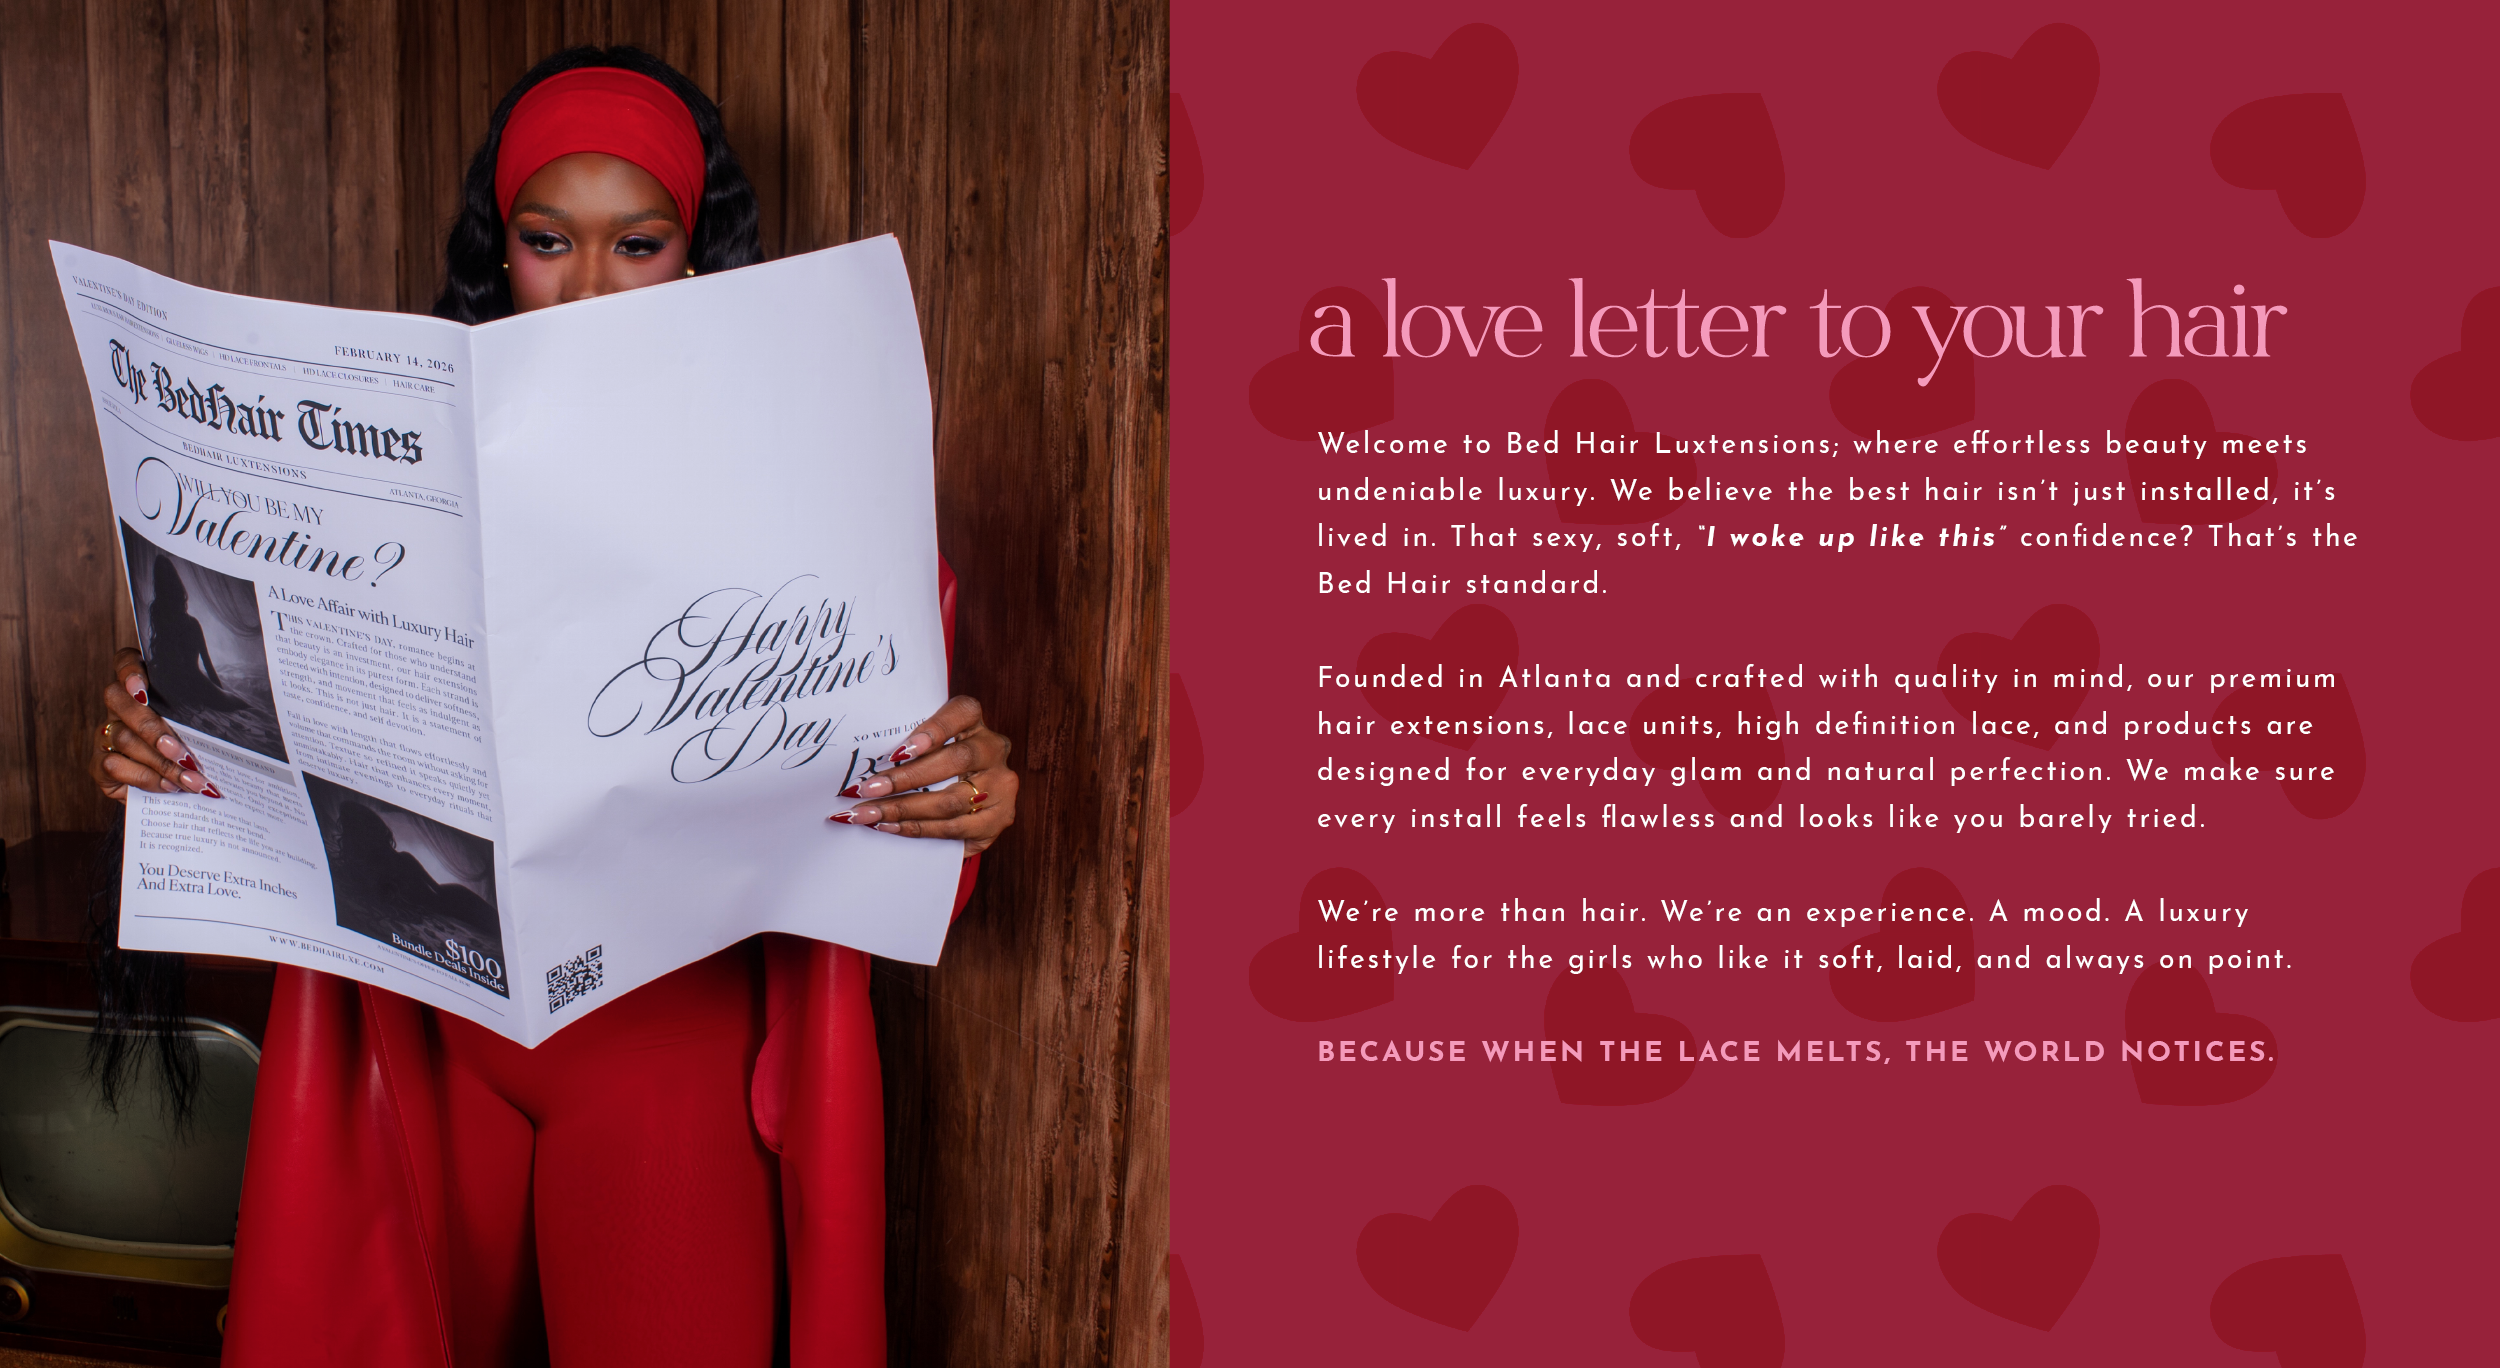 VALENTINE'S DAY EDITION
FEBRUARY 14, 2026
GLUELESS WIGS | HD LACE FRONTALS | HD LACE CLOSURES | HAIR CARE
The BedHair Times
BEDHAIR LUXTENSIONS
ATLANTA, GEORGIA
WILL YOU BE MY
Valentine?
A Love Affair with Luxury Hair
THIS VALENTINE'S DAY, romance begins at
the crown. Crafted for those who understand
that beauty is an investment, our hair extensions
embody elegance in its purest form. Each strand is
selected with intention, designed to deliver softness,
strength, and movement that feels as indulgent as
it looks. This is not just hair. It is a statement of
taste, confidence, and self devotion.
Fall in love with length that flows effortlessly and
volume that commands the room without asking for
attention. Texture so refined it speaks quietly yet
unmistakably. Hair that enhances every moment,
from intimate evenings to everyday rituals that
deserve luxury.
This season, choose a love that lasts.
Choose standards that never bend.
Choose hair that reflects the life you are building.
Because true luxury is not announced.
It is recognized.
You Deserve Extra Inches
And Extra Love.
$100
Bundle Deals Inside
WWW.BEDHAIRLXE.COM
Happy
Valentine's
Day
XO WITH LOVE
a love letter to your hair
Welcome to Bed Hair Luxtensions; where effortless beauty meets
undeniable luxury. We believe the best hair isn't just installed, it's
lived in. That sexy, soft, "I woke up like this" confidence? That's the
Bed Hair standard.
Founded in Atlanta and crafted with quality in mind, our premium
hair extensions, lace units, high definition lace, and products are
designed for everyday glam and natural perfection. We make sure
every install feels flawless and looks like you barely tried.
We're more than hair. We're an experience. A mood. A luxury
lifestyle for the girls who like it soft, laid, and always on point.
BECAUSE WHEN THE LACE MELTS, THE WORLD NOTICES.